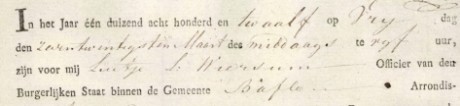 In het Jaar één duizend acht honderd en twaalf op Vry dag
den zevenentwintigsten Maart des middags te vyf uur,
zijn voor mij Luitje L Wiersum Officier van den
Burgerlijken Staat binnen de Gemeente Baflo Arrondis-